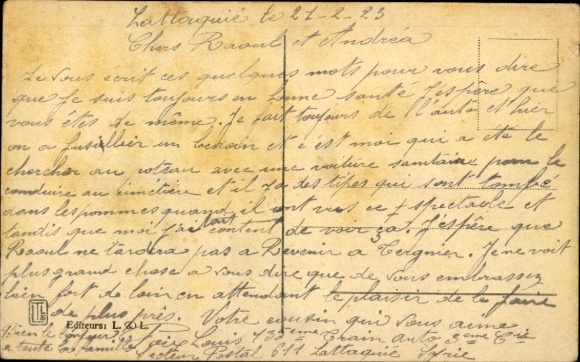 Lattaquié le 21-2-23
Chers Raoul et Andréa
Je vous ecrit ces quelques mots pour vous dire
que je suis toujours en bonne sante J'espère que
vous êtes de même. Je fait toujours de l'auto et hier
on a fusiller un bedoin et c'est moi qui a été le
chercher au poteau avec une voiture sanitaire pour le
conduire au cimetiere et il y a des tipes qui sont tombé
dans les pommes quand il ont vus ce spectacle et
tandis que moi j'ai content de voir ça. J'espère que
Raoul ne tardera pas a Revenir a Tergnier. Je ne voit
plus grand chose a vous dire que de vous embrasser
bien fort de loin en attendant le plaisir de le faire
de plus près. Votre cousin qui vous aime
Editeurs: L. & L.
Bien le bonjour
a toute la famille
Louis, 135eme Train auto 3eme Cie
Secteur Postal 611 Lattaquie Syrie